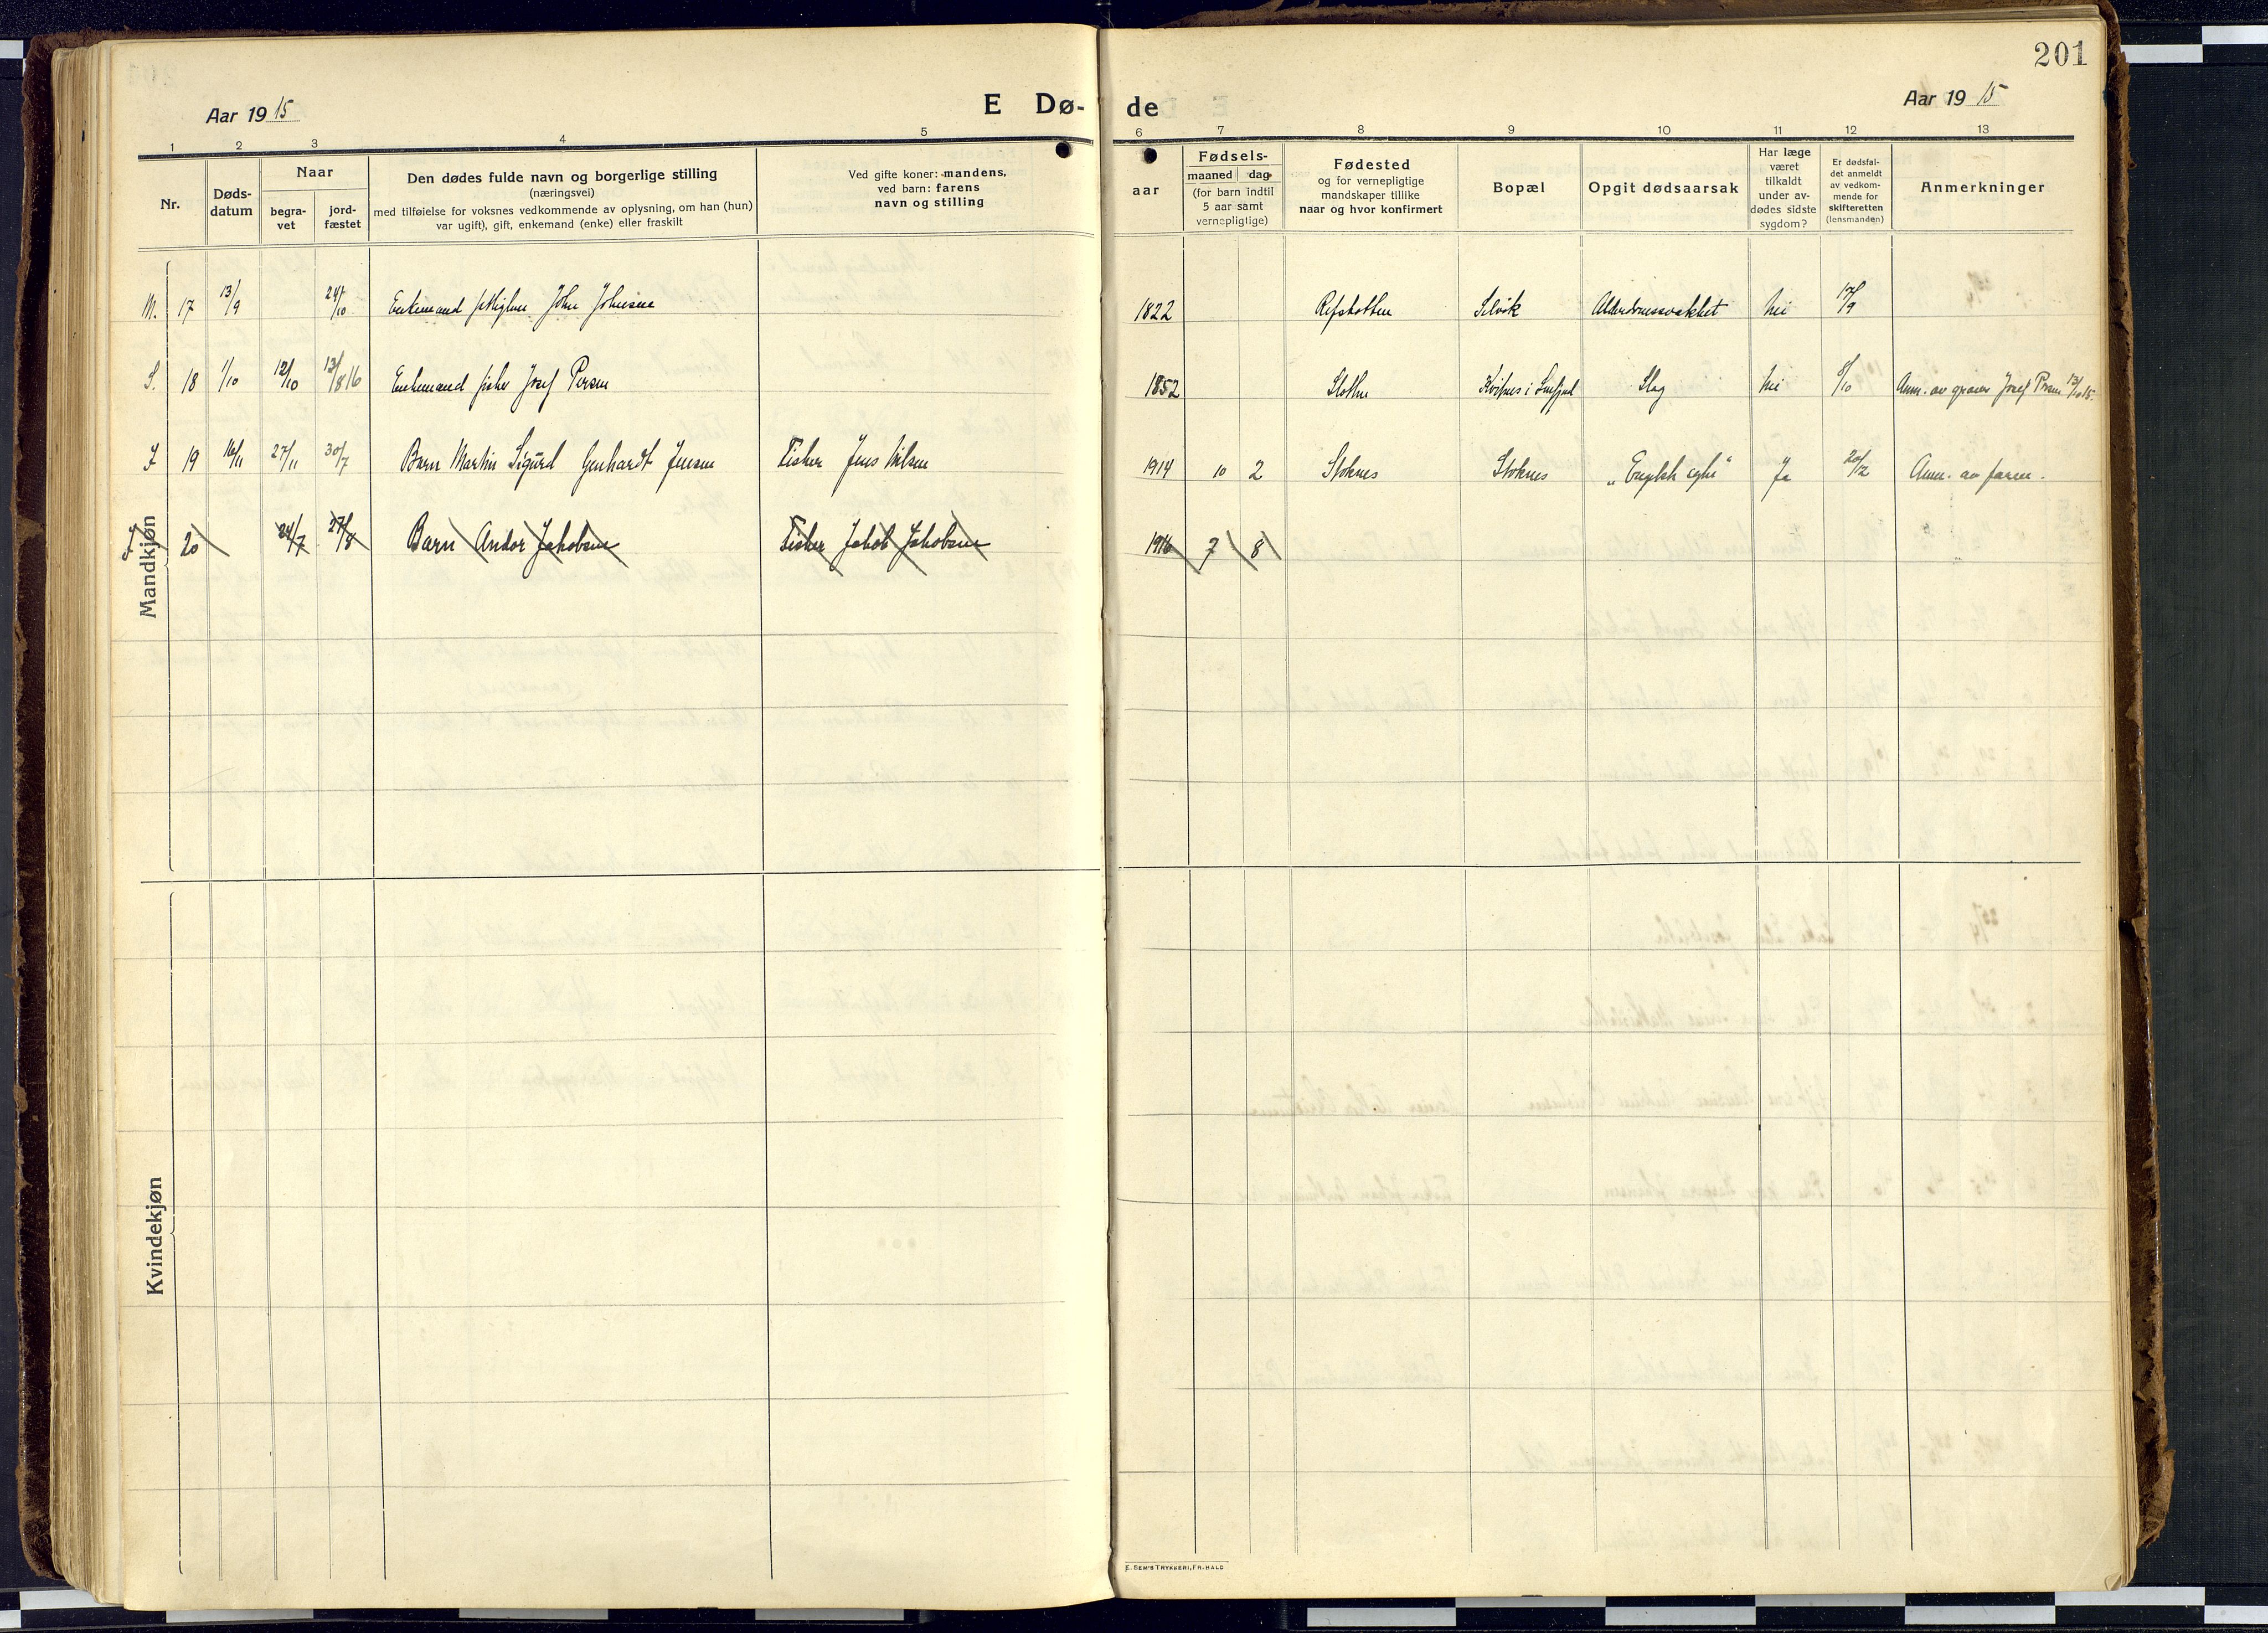 201
Aar 1915
E Dø- de
Aar 1915
1 2 3 4 5 6 7 8 9 10 11 12 13
Nr.
Døds-
datum
Naar
begra-
vet
jord-
fæstet
Den dødes fulde navn og borgerlige stilling
(næringsvei)
med tilføielse for voksnes vedkommende av oplysning, om han (hun)
var ugift), gift, enkemand (enke) eller fraskilt
Ved gifte koner: mandens,
ved barn: farens
navn og stilling
aar
Fødsels-
maaned dag
(for barn indtil
5 aar samt
vernepligtige)
Fødested
og for vernepligtige
mandskaper tillike
naar og hvor konfirmert
Bopæl
Opgit dødsaarsak
Har læge
været
tilkaldt
under av-
dødes sidste
sygdom?
Er dødsfal-
det anmeldt
av vedkom-
mende for
skifteretten
(lensmanden)
Anmerkninger
M. 17 13/9 24/10 Enkemand John Johnsen 1822 Selvik nei 17/9
S. 18 1/10 12/10 13/8 16 Enkemand fisker Josef Persen 1852 Slag nei 8/10 Anm. av Josef
19 16/11 27/11 30/7 Barn Martin Sigurd Gerhardt Jensen Fisker Jens Nilsen 1914 10 2 Stoknes Stoknes „Engelsk syke" Ja 20/2 Anm. av faren.
20 24/7 27/8 Barn Andor Jakobsen Fisker Jakob Jakobsen 1916 7 8
Mandkjøn
Kvindekjøn
E. SEM'S TRYKKERI, FR.HALD